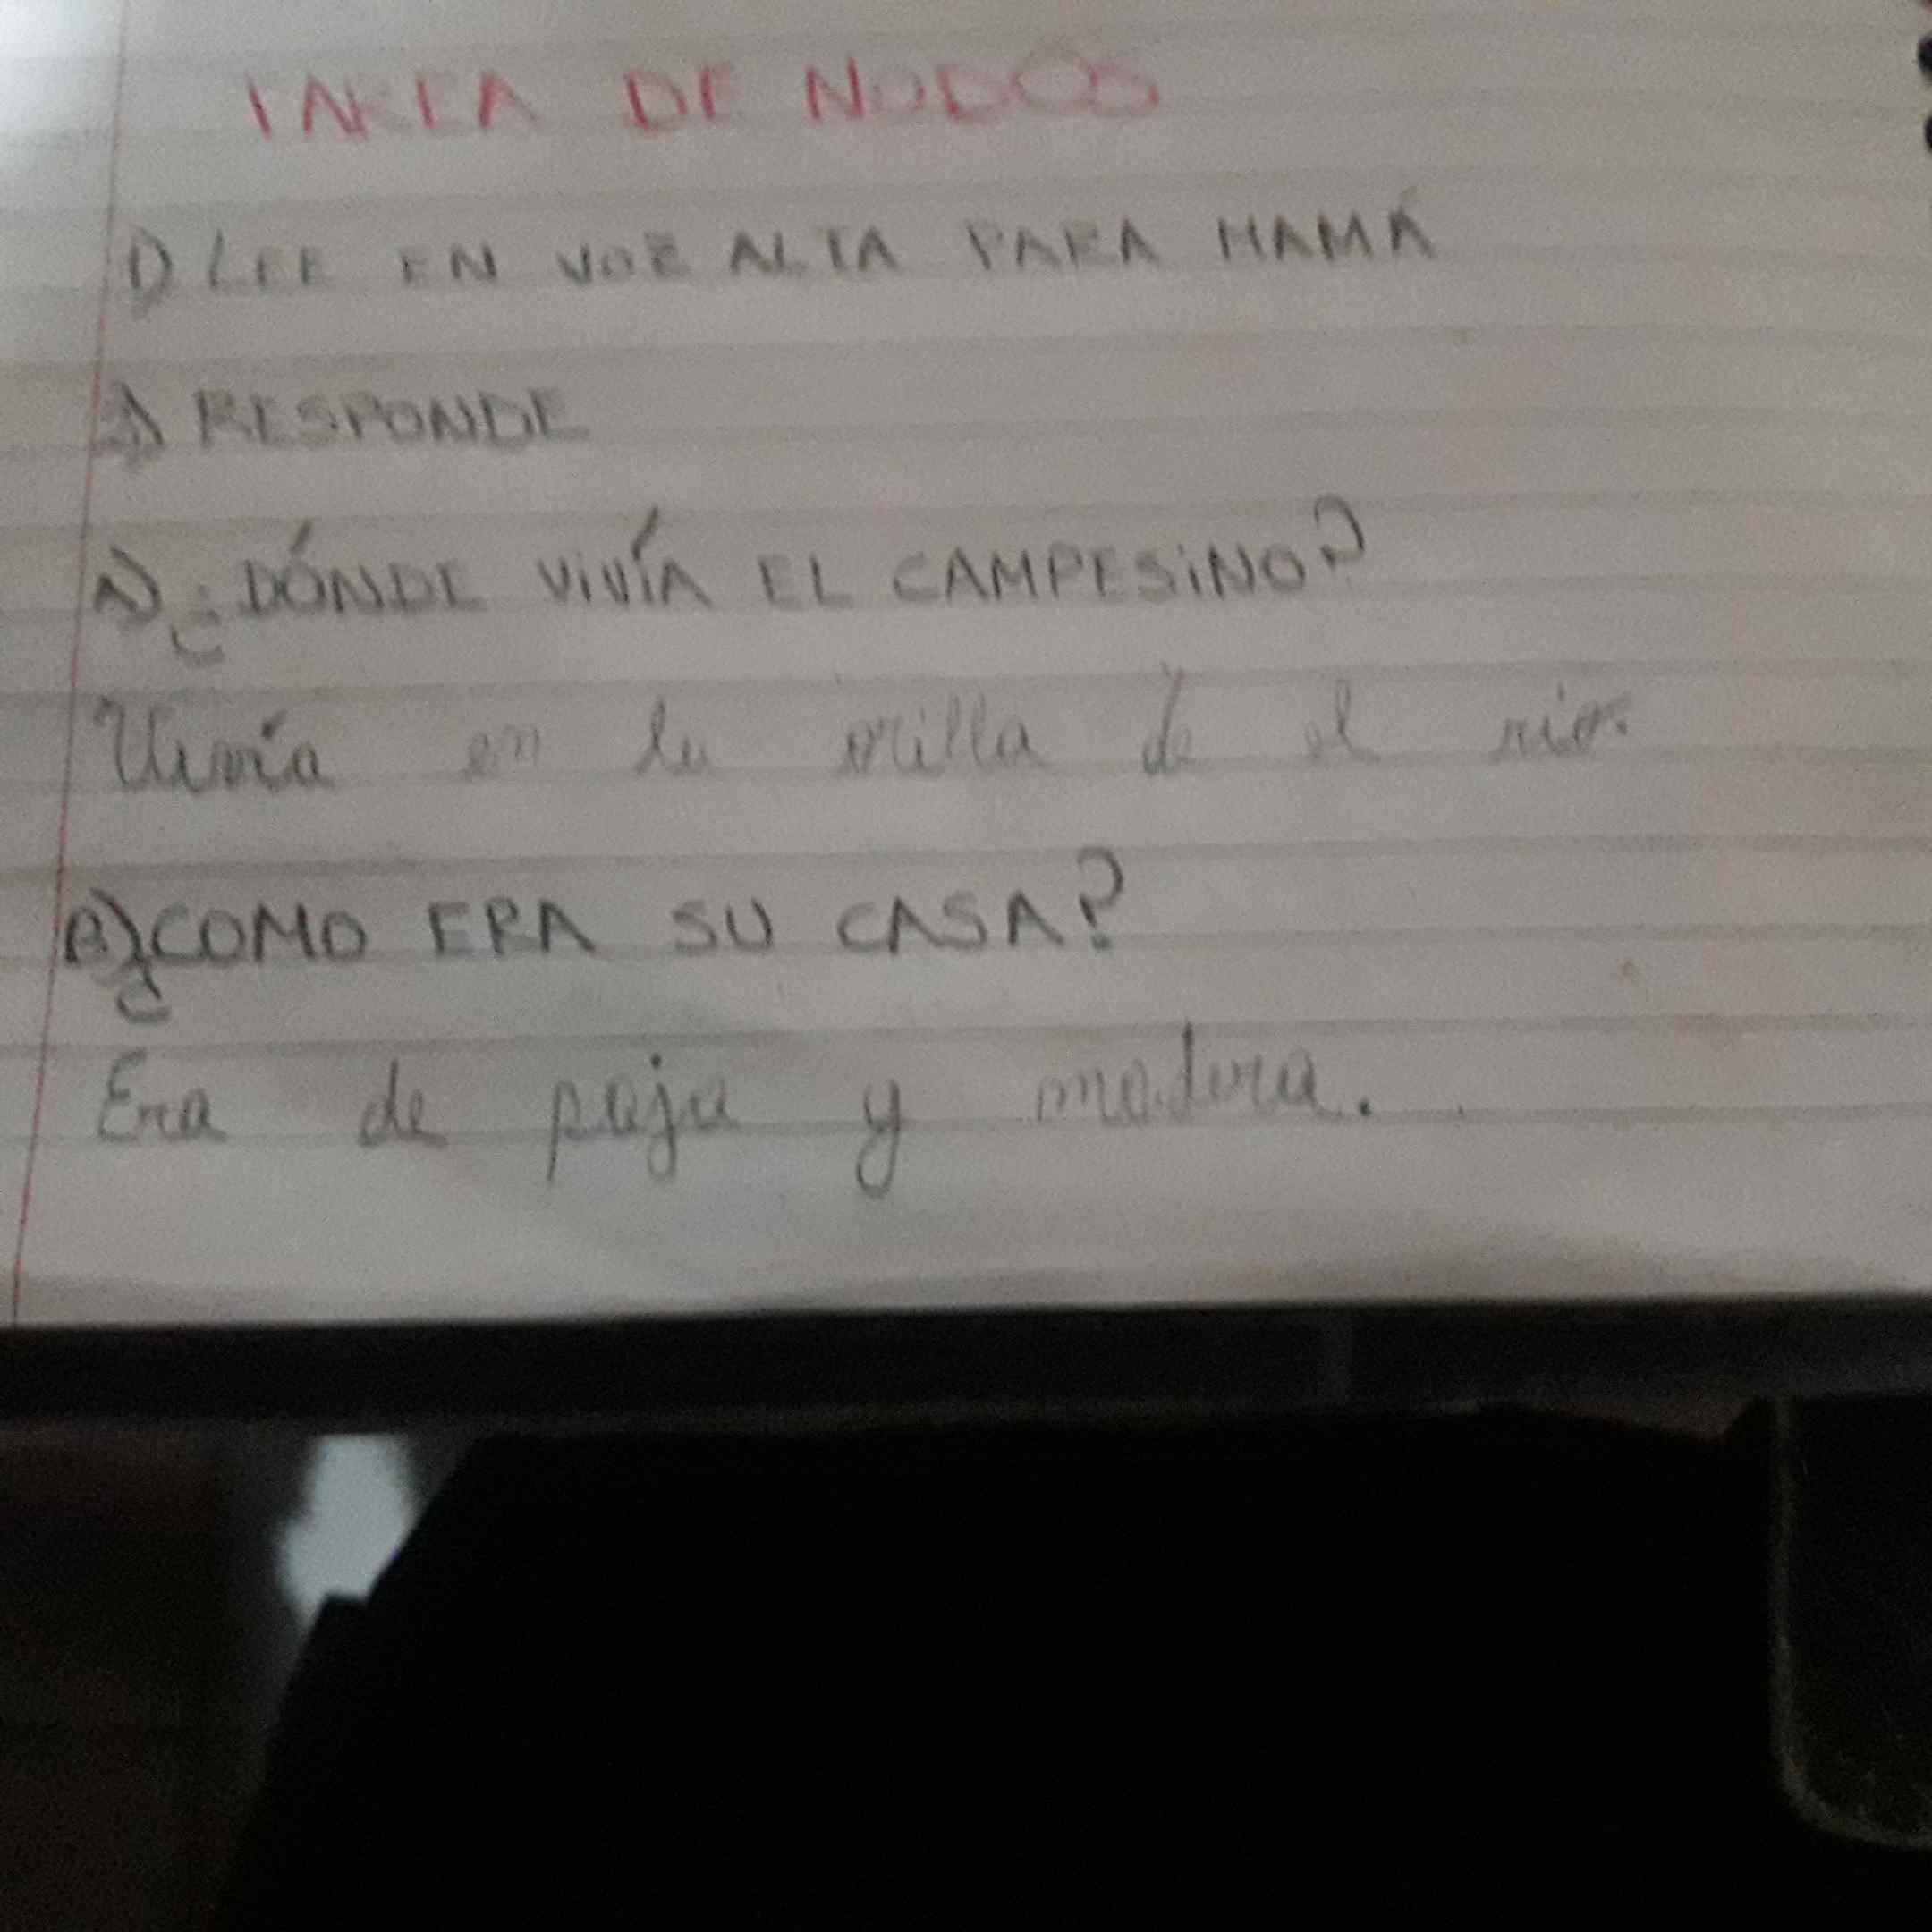 TAREA DE NODOS
1) LEE EN VOZ ALTA PARA MAMÁ
2) RESPONDE
A) ¿DÓNDE VIVÍA EL CAMPESINO?
Vivía en la orilla de el rio.
B) ¿COMO ERA SU CASA?
Era de paja y madera.